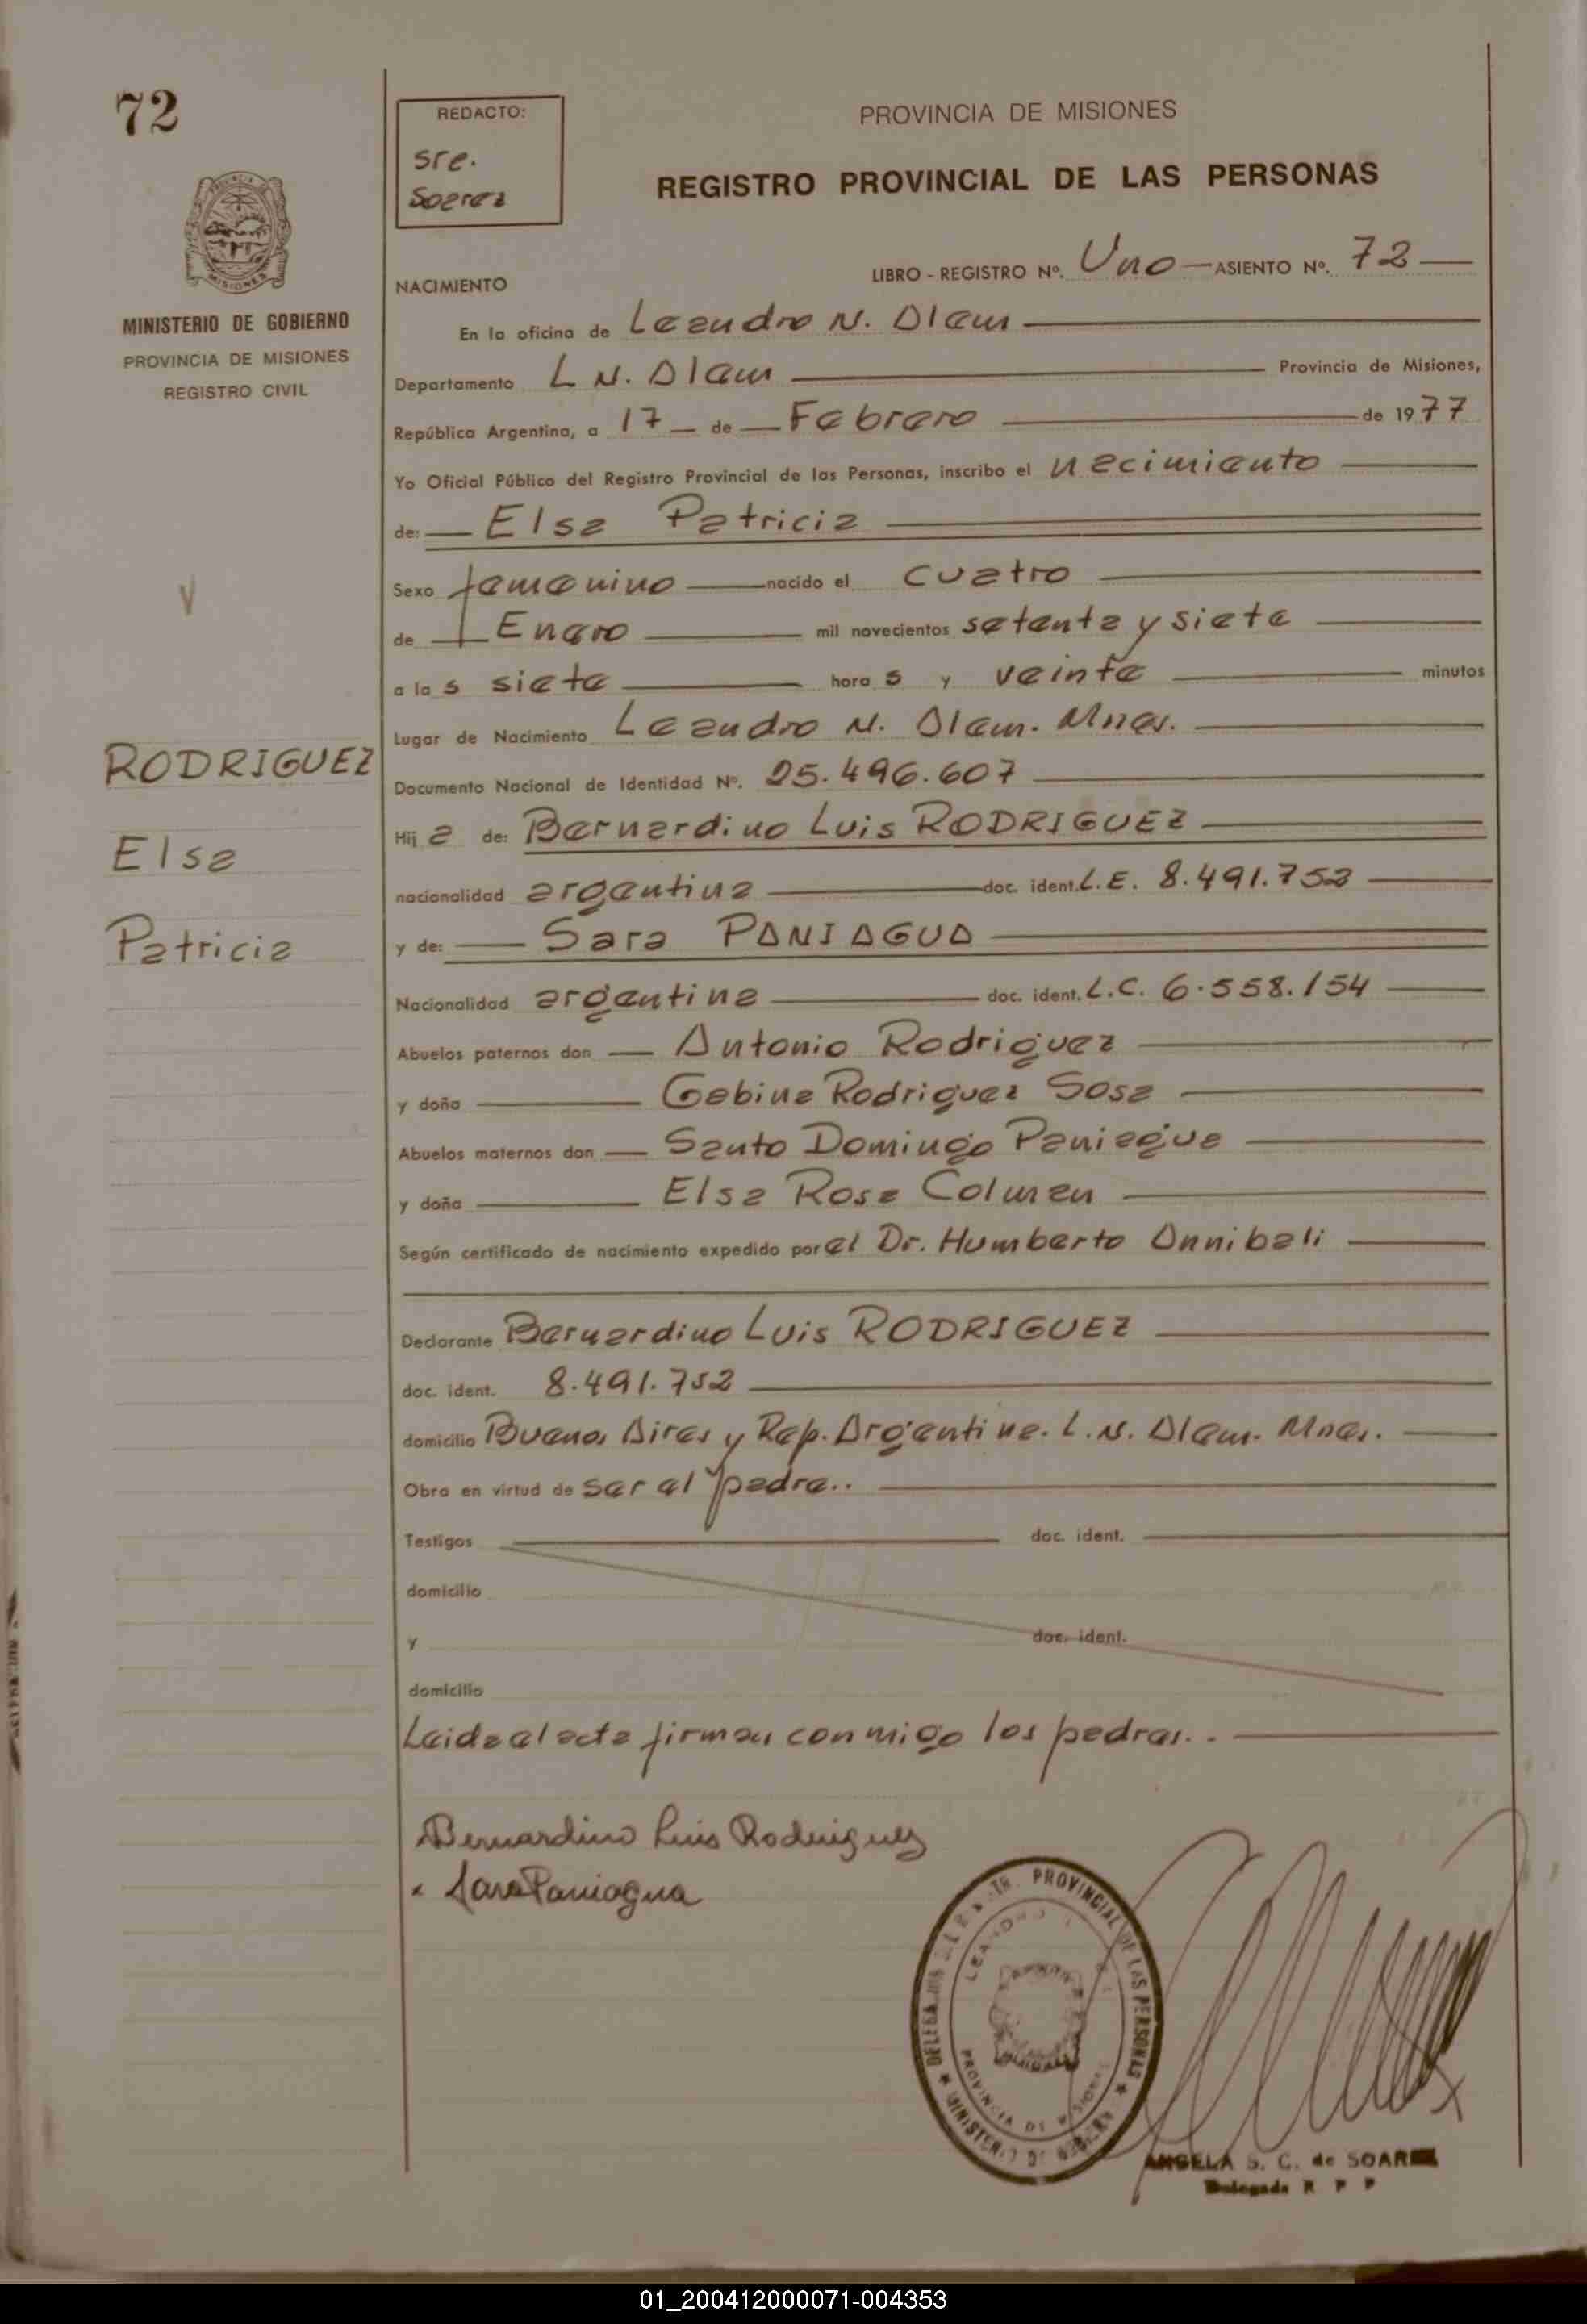 72
REDACTO:
sre.
Soares
PROVINCIA DE MISIONES
REGISTRO PROVINCIAL DE LAS PERSONAS
LIBRO - REGISTRO Nº. Uno ASIENTO Nº. 72
NACIMIENTO
MINISTERIO DE GOBIERNO
PROVINCIA DE MISIONES
REGISTRO CIVIL
En la oficina de Leandro N. Alem
Departamento L N. Alem Provincia de Misiones,
República Argentina, a 17 de Febrero de 1977
Yo Oficial Público del Registro Provincial de las Personas, inscribo el nacimiento
de: Elsa Patricia
Sexo femenino nacido el cuatro
de Enero mil novecientos setenta y siete
a las siete horas y veinte minutos
Lugar de Nacimiento Leandro N. Alem. Mnes.
Documento Nacional de Identidad Nº. 25.496.607
RODRIGUEZ
Elsa
Patricia
Hija de: Bernardino Luis RODRIGUEZ
nacionalidad argentina doc. ident. L.E. 8.491.752
y de: Sara PANIAGUA
Nacionalidad argentina doc. ident. L.C. 6.558.154
Abuelos paternos don Antonio Rodriguez
y doña Gabina Rodriguez Sosa
Abuelos maternos don Santo Domingo Paniagua
y doña Elsa Rosa Colman
Según certificado de nacimiento expedido por el Dr. Humberto Annibali
Declarante Bernardino Luis RODRIGUEZ
doc. ident. 8.491.752
domicilio Buenos Aires y Rep. Argentina. L.N. Alem. Mnes.
Obra en virtud de ser el padre..
Testigos doc. ident.
domicilio
y doc. ident.
domicilio
Leida el acta firman conmigo los padres..
Bernardino Luis Rodriguez
Sara Paniagua
PROVINCIAL DE LAS PERSONAS
PROVINCIA DE MISIONES
ANGELA S. C. de SOARES
Delegada R P P
01_200412000071-004353